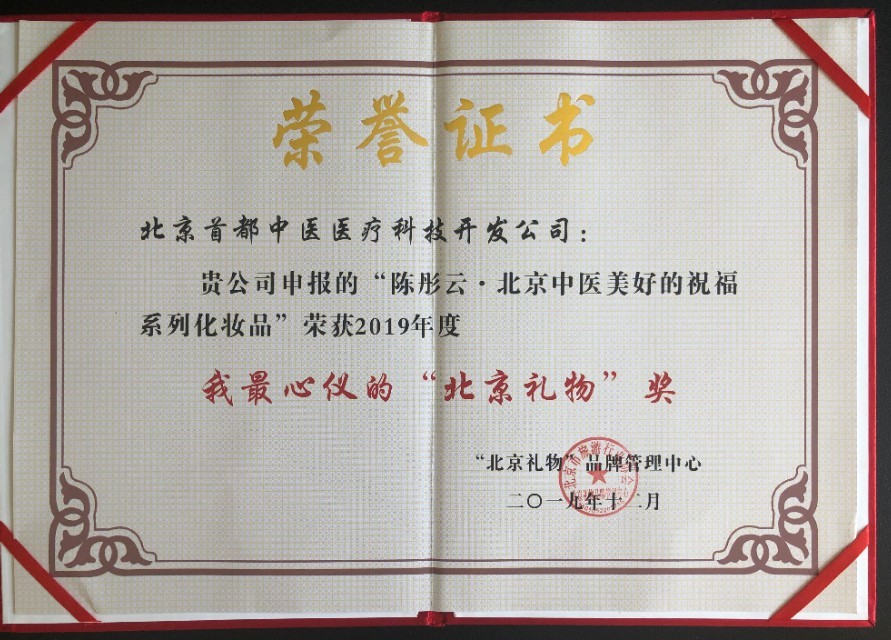 荣誉证书
北京首都中医医疗科技开发公司：
贵公司申报的“陈彤云·北京中医美好的祝福
系列化妆品”荣获2019年度
我最心仪的“北京礼物”奖
“北京礼物”品牌管理中心
二〇一九年十二月
北京市旅游行业协会